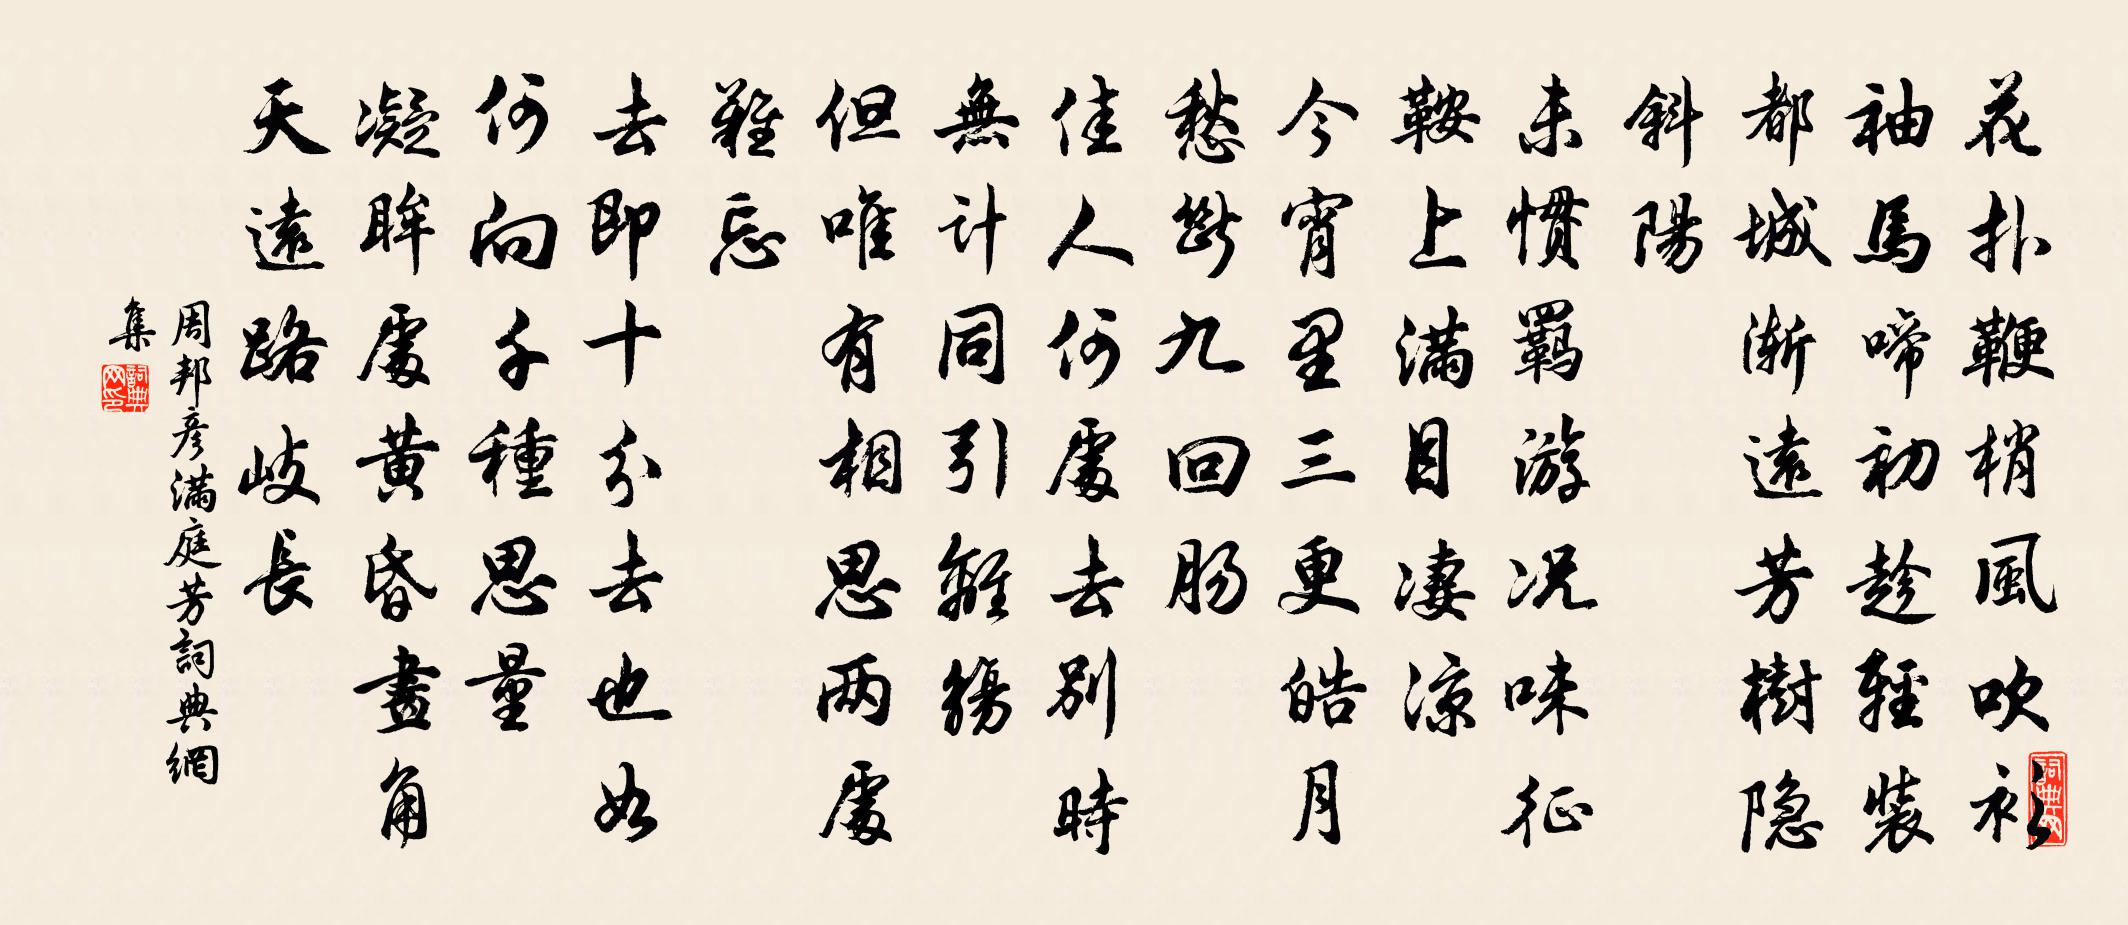 花扑鞭梢風吹衫
袖馬啼初趁輕裝
都城漸遠芳樹隐
斜陽
未慣羁游况味征
鞍上滿目凄涼
今宵里三更皓月
愁斷九回肠
佳人何處去别時
無計同引離觴
但唯有相思两處
難忘
去即十分去也如
何向千種思量
凝眸處黄昏畫角
天遠路岐長
周邦彦滿庭芳詞典網
集
詞典网印
詞典网